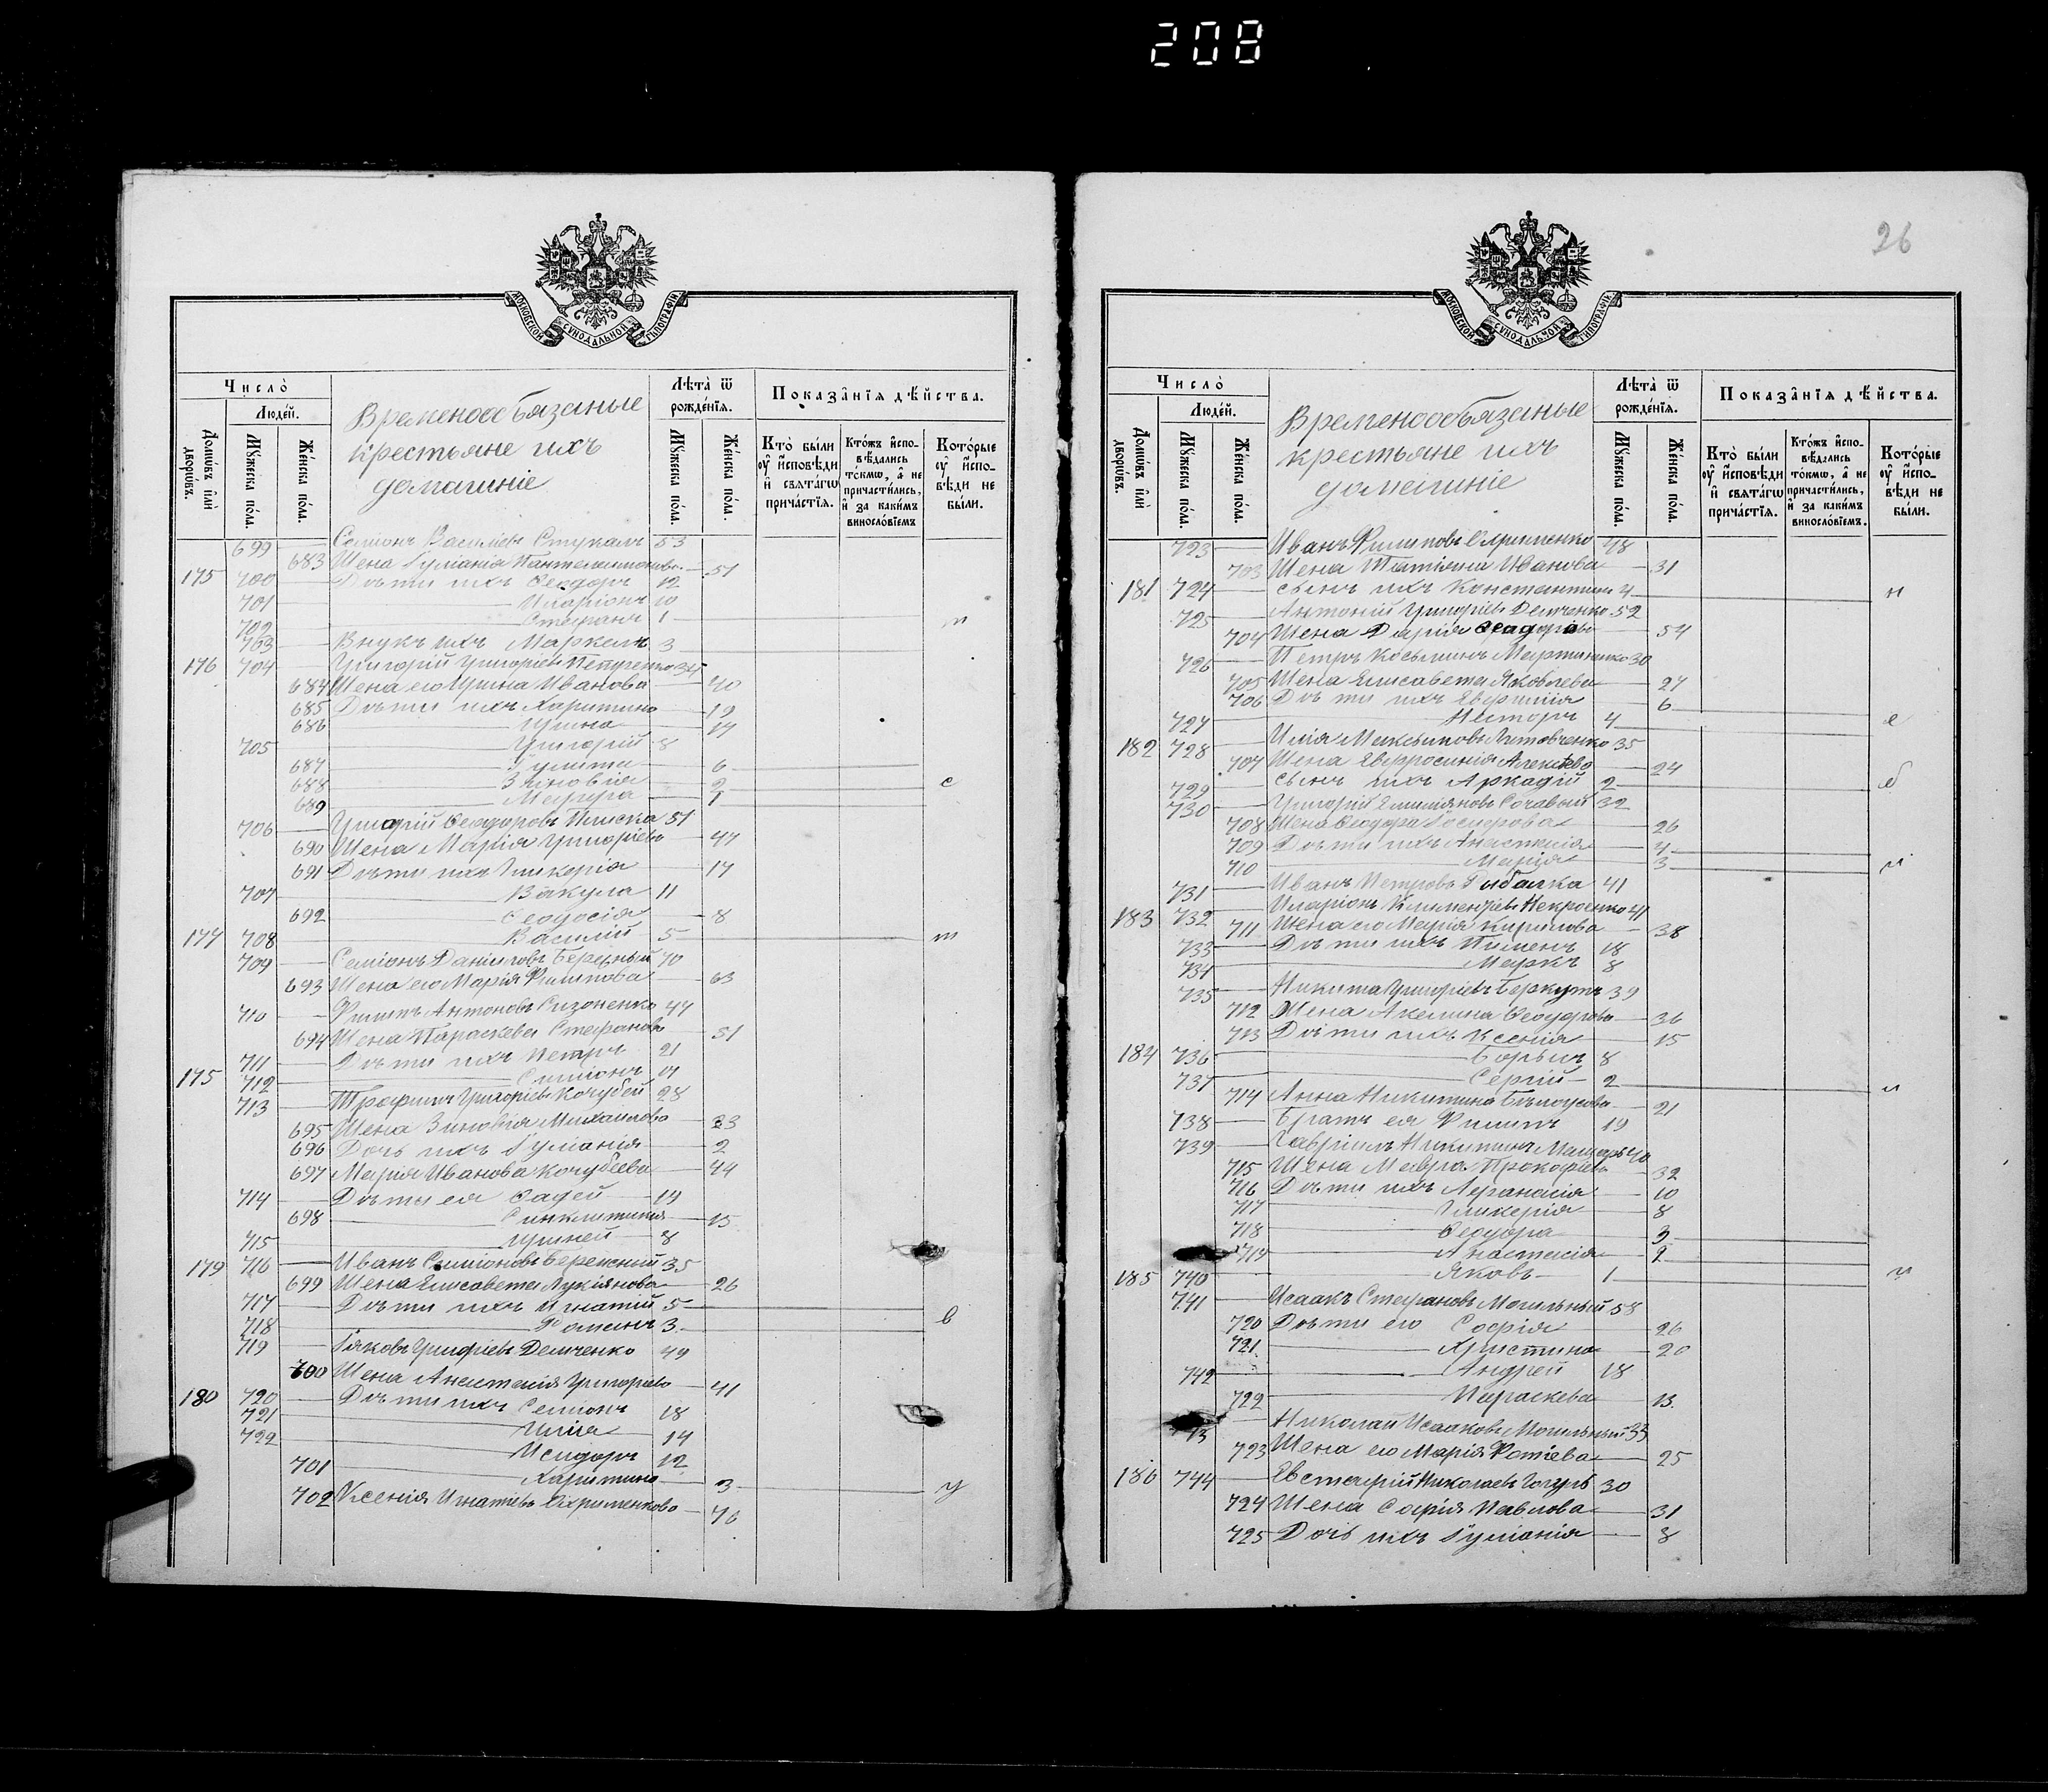 208
26
МОСКОВСКОЙ СѴНОДАЛЬНОЙ ТИПОГРАФІИ
Число̀
Людей.
Домѡвъ или дворѡвъ.
Мꙋжеска пола.
Женска пола.
Временообязаные
крестьяне ихъ
домашніе
Лѣта ѿ рожденія.
Мꙋжеска пола.
Женска пола.
Показанія дѣйства.
Кто были ᲂу исповѣди и свѧтагѡ причастїѧ.
Ктожъ исповѣдались токмѡ, а не причастились, и за какимъ винословїемъ
Которые ᲂу исповѣди не были.
699 Семіонъ Василіевъ Стукалъ 53
683 Жена Іуліанія Пантелеимонова 51
175 700 Дѣти ихъ Ѳеодоръ 12
701 Иларіонъ 10
702 Стефанъ 1 т
703 Внукъ ихъ Маркелъ 3
176 704 Григорій Григоріевъ 35
684 Жена его Ирина Иванова 40
685 Дѣти ихъ Харитина 19
686 Ирина 17
705 Григорій 8
687 Іулита 6
688 Зиновія 2 с
689 Мавра 1
706 Григорій Ѳеодоровъ 51
690 Жена Марія Григоріева 47
691 Дѣти ихъ Гликерія 17
707 Вакула 11
692 Ѳеодосія 8
177 708 Василій 5 т
709 Семіонъ Даніиловъ Бережный 70
693 Жена его Марія Филипова 63
710 Филипъ Антоновъ Сизоненко 47
694 Жена Параскева Стефанова 51
711 Дѣти ихъ Петръ 21
175 712 Симіонъ 17
713 Трофимъ Григоріевъ Кочубей 28
695 Жена Зиновія Михаилова 23
696 Дочь ихъ Іуліанія 2
697 Марія Иванова Кочубеева 44
714 Дѣти ея Фадей 19
698 Синклитикія 15
715 Ириней 8
179 716 Иванъ Симіоновъ Бережный 35
699 Жена Елисавета Лукіянова 26
717 Дѣти ихъ Игнатій 5
718 Романъ 3 в
719 Іяковъ Григоріевъ Демченко 49
700 Жена Анастасія Григоріева 41
180 720 Дѣти ихъ Семіонъ 18
721 Илія 14
722 Исидоръ 12
701 Харитина 3 у
702 Ксенія Игнатіева Охрименкова 70
МОСКОВСКОЙ СѴНОДАЛЬНОЙ ТИПОГРАФІИ
Число̀
Людей.
Домѡвъ или дворѡвъ.
Мꙋжеска пола.
Женска пола.
Временообязаные
крестьяне ихъ
домашніе
Лѣта ѿ рожденія.
Мꙋжеска пола.
Женска пола.
Показанія дѣйства.
Кто были ᲂу исповѣди и свѧтагѡ причастїѧ.
Ктожъ исповѣдались токмѡ, а не причастились, и за какимъ винословїемъ.
Которые ᲂу исповѣди не были.
723 Иванъ Филиповъ Охрименко 48
703 Жена Татіяна Иванова 31
181 724 сынъ ихъ Константинъ 4 н
725 Антоній Григоріевъ Демченко 52
704 Жена Дарія Ѳеодорова 54
726 Петръ Косьминъ Мартиненко 30
705 Жена Елисавета Яковлева 27
706 Дѣти ихъ Евфимія 6
727 Несторъ 4 е
182 728 Илія Максимовъ Литовченко 35
707 Жена Евфросинія Алексѣева 24
729 сынъ ихъ Аркадій 2 б
730 Григорій Емиліяновъ 32
708 Жена Ѳеодора Іосифова 26
709 Дѣти ихъ Анастасія 7
710 Марія 3
731 Иванъ Петровъ Рибалка 41
183 732 Иларіонъ Климентіевъ 41
711 Жена его Марія Кирилова 38
733 Дѣти ихъ Пименъ 18
734 Маркъ 8
735 Никита Григоріевъ Беркутъ 39
712 Жена Акелина Ѳеодорова 36
713 Дѣти ихъ Ксенія 15
184 736 Борисъ 8
737 Сергій 2
714 Анна Никитина Бѣлоусова 21
738 Братъ ея Филипъ 19
739 Гавріилъ Никитинъ 40
715 Жена Мавра Прокофіева 32
716 Дѣти ихъ Афанасія 10
717 Гликерія 8
718 Ѳеодора 3
719 Анастасія 2
185 740 Яковъ 1
741 Исаакъ Стефановъ Могильный 58
720 Дѣти его Софія 26
721 Христина 20
742 Андрей 18
722 Параскева 13
Николай Исааковъ Могильный 33
723 Жена его Марія Фотіева 25
186 744 Евстафій Николаевъ 30
724 Жена Софія Павлова 31
725 Дочь ихъ Іуліанія 8